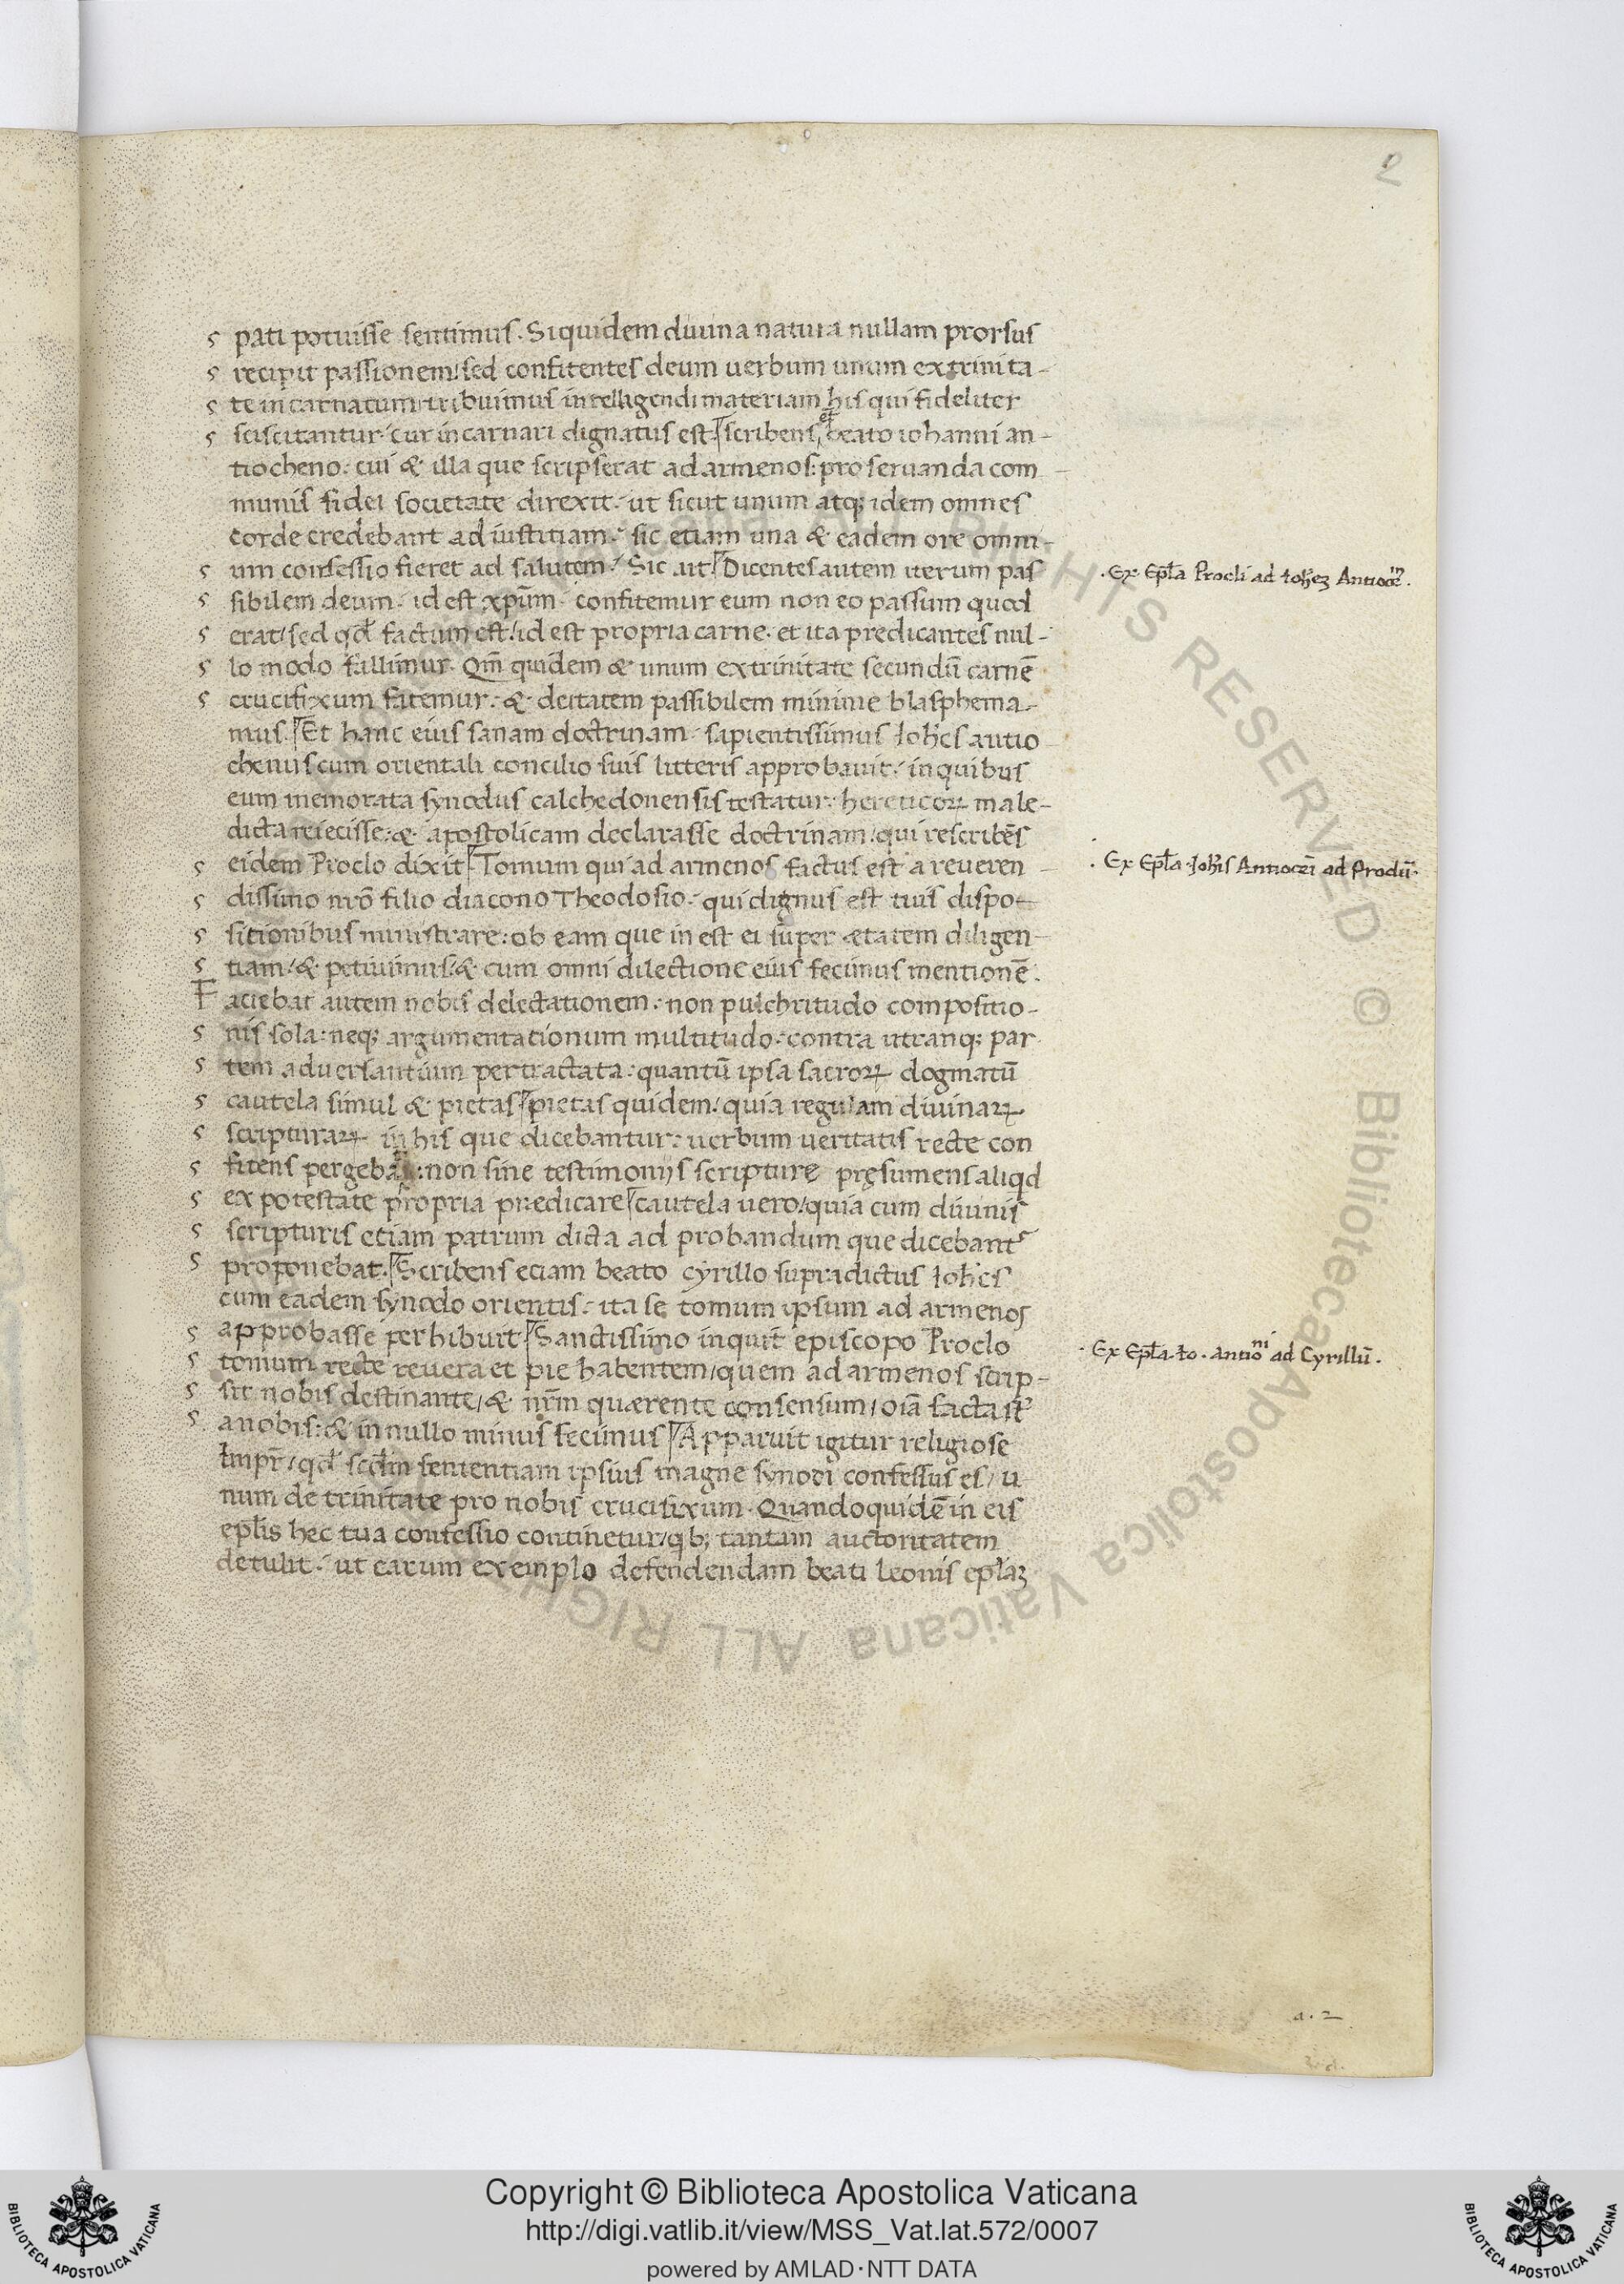 2
pati potuisse sentimus. Siquidem diuina natura nullam prorsus
recipit passionem: sed confitentes deum uerbum unum extrinita-
te incarnatum: tribuimus intelligendi materiam his qui fideliter
sciscitantur cur incarnari dignatus est. scribens et beato iohanni an-
tiocheno. cui & illa que scripserat ad armenos: pro seruanda com
munis fidei societate direxit. ut sicut unum atq; idem omnes
corde credebant ad iustitiam. sic etiam una & eadem ore omni-
um confessio fieret ad salutem. Sic ait Dicentes autem uerum pas
sibilem deum. id est xp̄um. confitemur eum non eo passum quod
erat/ sed qđ factum est. id est propria carne. et ita predicantes nul-
lo modo fallimur. Qm̄ quidem & unum extrinitate secundū carnē
crucifixum fatemur. & deitatem passibilem minime blasphema-
mus. Et hanc eius sanam doctrinam. sapientissimus Ioh̄es antio
chenus cum orientali concilio suis litteris approbauit. in quibus
eum memorata synodus calchedonensis testatur. hereticoꝝ male-
dicta reiecisse. & apostolicam declarasse doctrinam/ qui rescribēs
eidem Proclo dixit Tomum qui ad armenos factus est a reueren
dissimo nr̄o filio diacono Theodosio. qui dignus est tuis dispo-
sitionibus ministrare: ob eam que in est ei super ætatem diligen-
tiam/ & petiuimus/ & cum omni dilectione eius fecimus mentionē.
Faciebat autem nobis delectationem. non pulchritudo compositio-
nis sola: neq; argumentationum multitudo. contra utranq; par
tem aduersantium pertractata. quantū ipsa sacroꝝ dogmatū
cautela simul & pietas pietas quidem/ quia regulam diuinaꝝ
scripturaꝝ in his que dicebantur. uerbum ueritatis recte con
fitens pergebat: non sine testimonijs scripture pręsumens aliqd
ex potestate propria prædicare cautela uero/ quia cum diuinis
scripturis etiam patrum dicta ad probandum que dicebant᷑
proponebat. Scribens etiam beato cyrillo supradictus Ioh̄es
cum eadem synodo orientis. ita se tomum ipsum ad armenos
approbasse perhibuit Sanctissimo inquit episcopo Proclo
tomum recte reuera et pie habentem/ quem ad armenos scrip-
sit nobis destinante/ & nr̄m quærente consensum/ oīa facta st̄
a nobis: & in nullo minus fecimus Apparuit igitur religiose
Impr̄/ qđ scđm sententiam ipsius magne synodi confessus es/ u
num de trinitate pro nobis crucifixum. Quandoquidē in eis
ep̄lis hec tua confessio continetur/ qb; tantam auctoritatem
detulit. ut earum exemplo defendendam beati leonis ep̄laꝫ
.Ex Ep̄la Procli ad Ioh̄eꝫ
.Ex Ep̄la Ioh̄is ad Proclū.
.Ex Ep̄la. Io. antioni ad Cyrillū.
a. 2
Copyright © Biblioteca Apostolica Vaticana
http://digi.vatlib.it/view/MSS_Vat.lat.572/0007
powered by AMLAD·NTT DATA
BIBLIOTECA APOSTOLICA VATICANA
BIBLIOTECA APOSTOLICA VATICANA